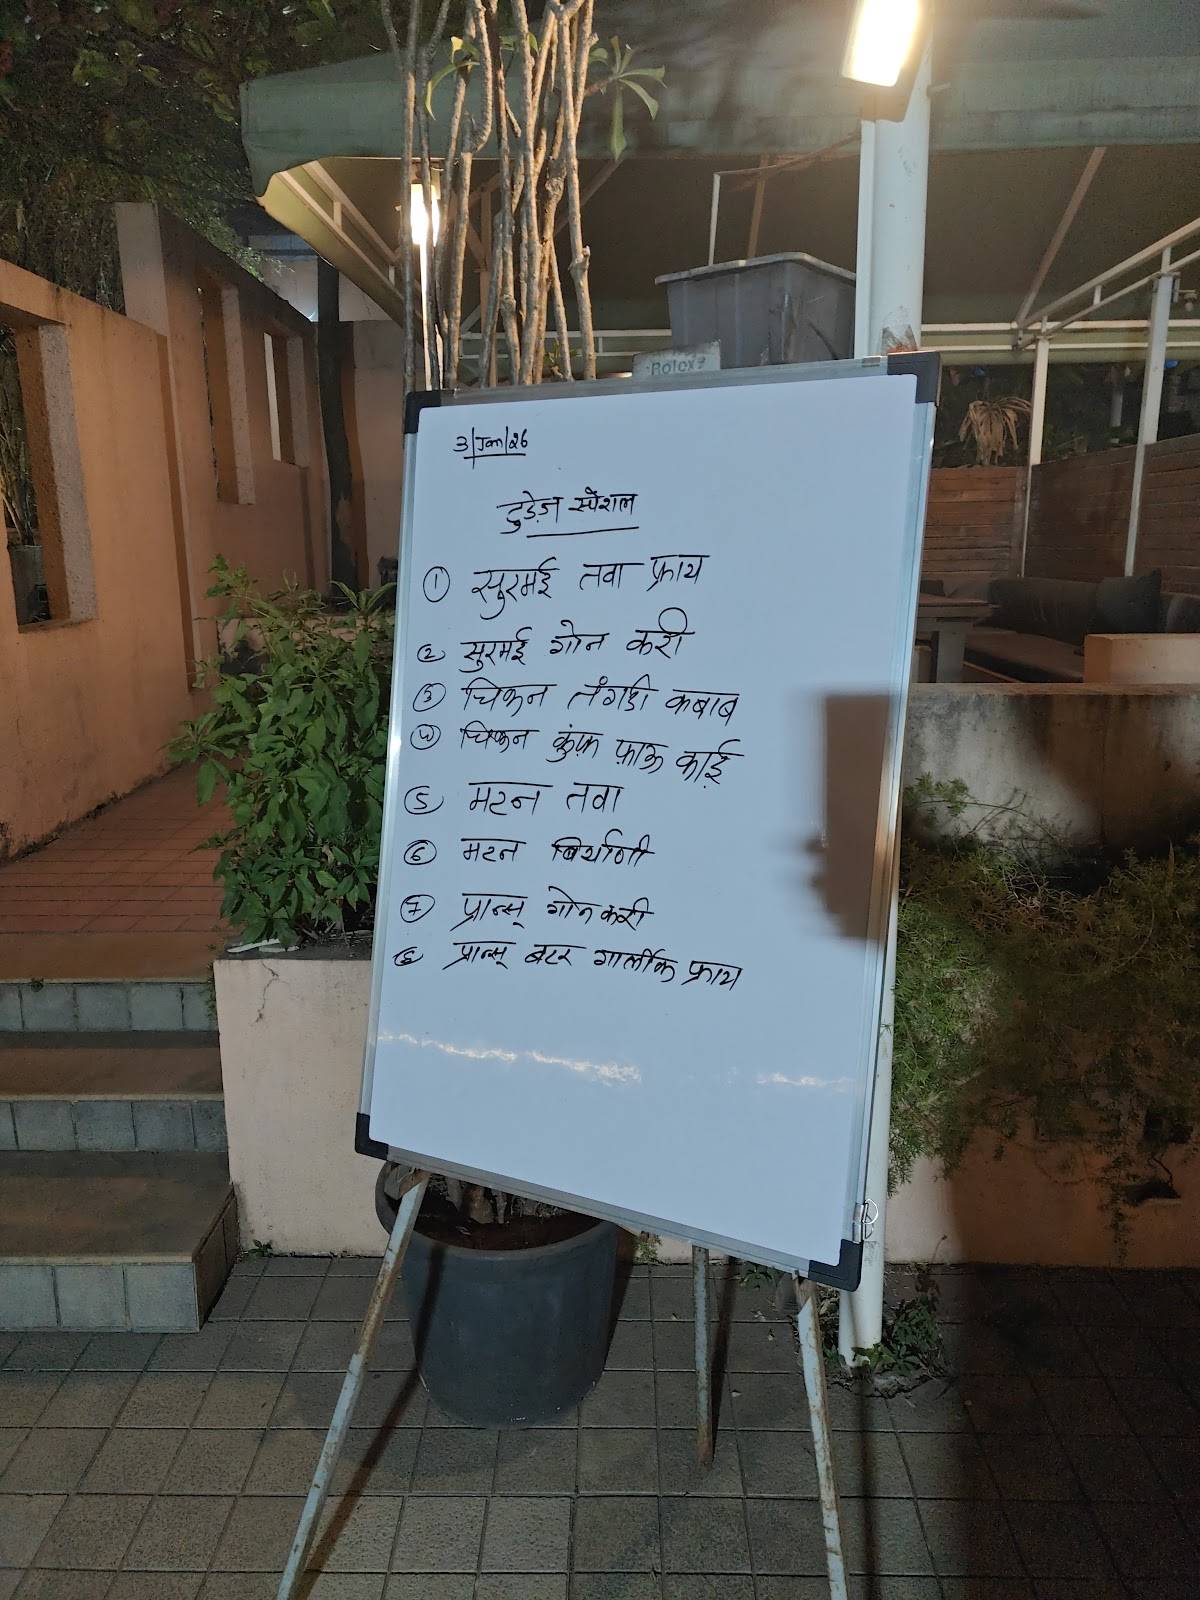 Rolex
3/Jan/26
टुडेज़ स्पेशल
① सुरमई तवा फ्राय
② सुरमई गोन करी
③ चिकन तंगडी कबाब
④ चिकन कुंफ़ फ़ाऊ काई
⑤ मटन तवा
⑥ मटन बिर्याणी
⑦ प्रान्स् गोन करी
⑧ प्रान्स् बटर गार्लीक फ्राय